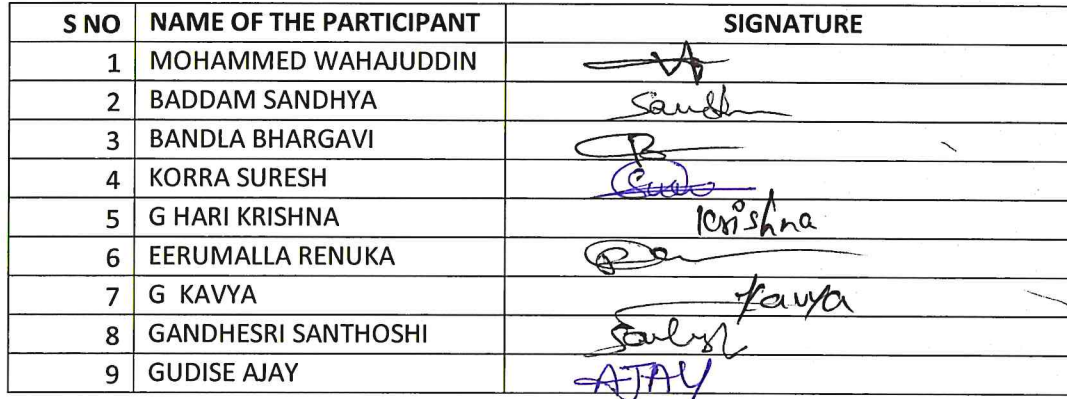 S NO NAME OF THE PARTICIPANT SIGNATURE
1 MOHAMMED WAHAJUDDIN
2 BADDAM SANDHYA Sandh
3 BANDLA BHARGAVI
4 KORRA SURESH
5 G HARI KRISHNA Krishna
6 EERUMALLA RENUKA
7 G KAVYA Kavya
8 GANDHESRI SANTHOSHI
9 GUDISE AJAY AJAY